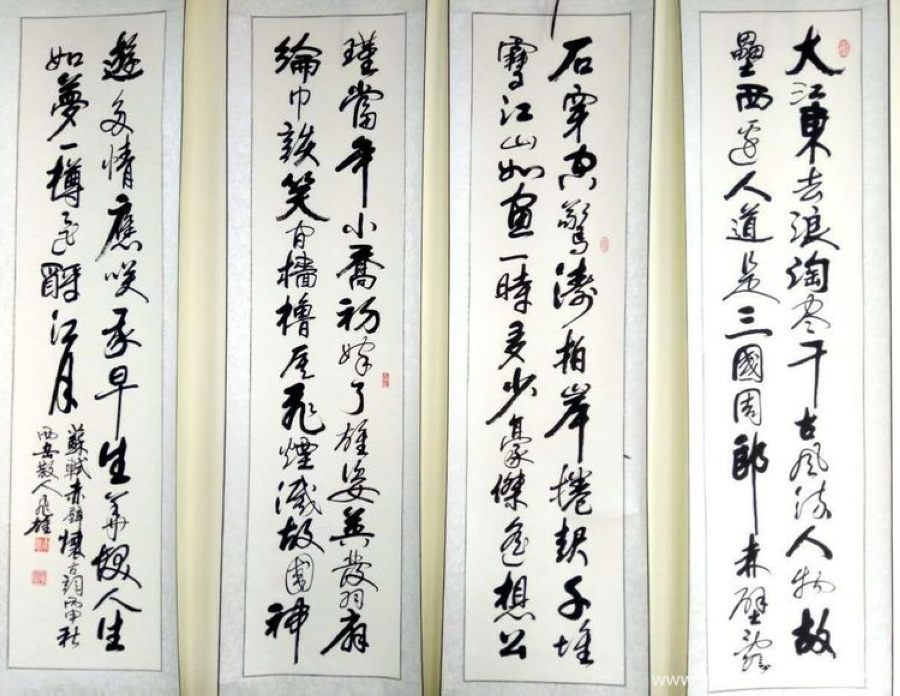 大江東去浪淘尽千古風流人物故
壘西邊人道是三國周郎赤壁亂
石穿空驚濤拍岸捲起千堆
雪江山如畫一時多少豪傑遙想公
瑾當年小喬初嫁了雄姿英發羽扇
綸巾談笑间檣櫓灰飛煙滅故國神
遊多情應笑我早生華髮人生
如夢一樽還酹江月
蘇軾赤壁懷古詞丙申秋
西安散人飛雄